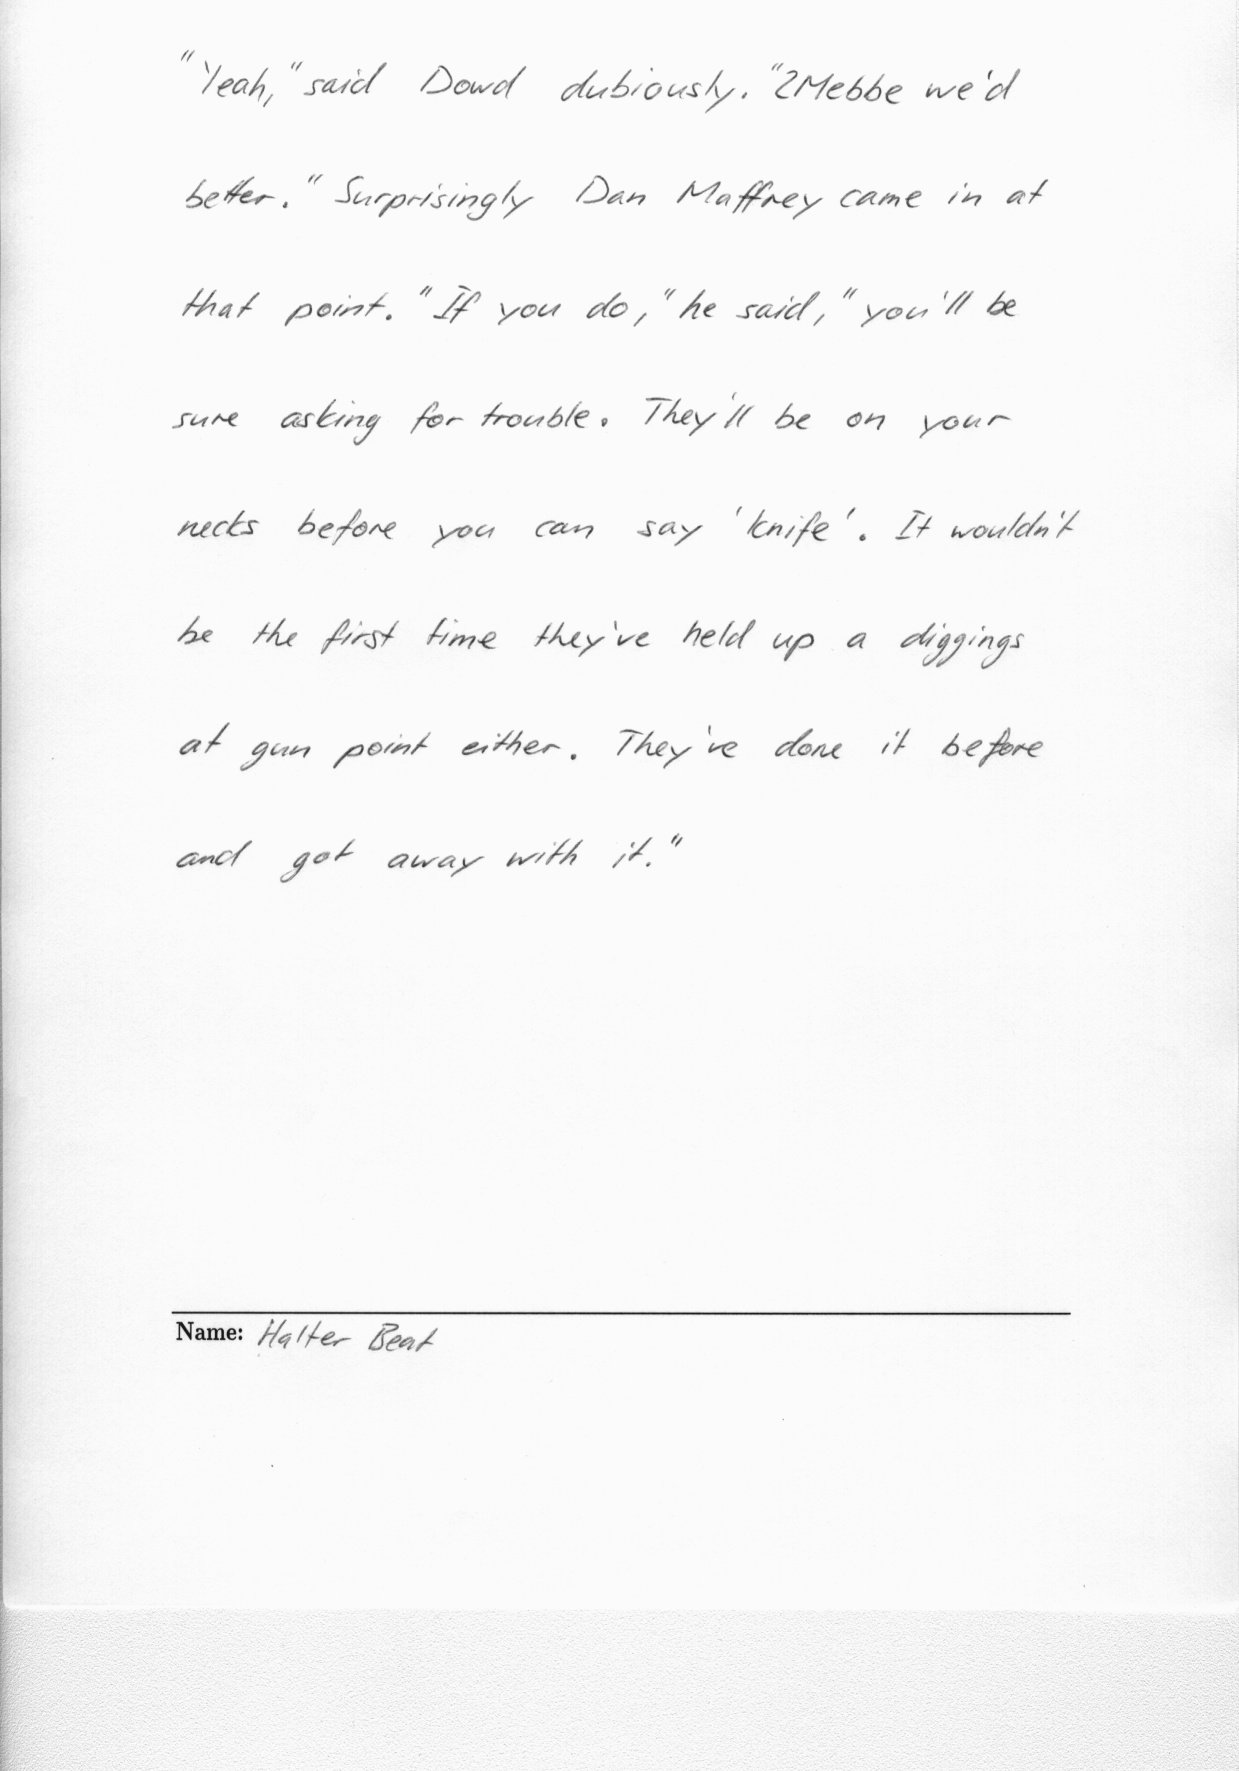 "Yeah," said Dowd dubiously. "2Mebbe we'd
better." Surprisingly Dan Maffrey came in at
that point. "If you do," he said, "you'll be
sure asking for trouble. They'll be on your
necks before you can say 'knife'. It wouldn't
be the first time they've held up a diggings
at gun point either. They've done it before
and got away with it."
Name: Halter Beat